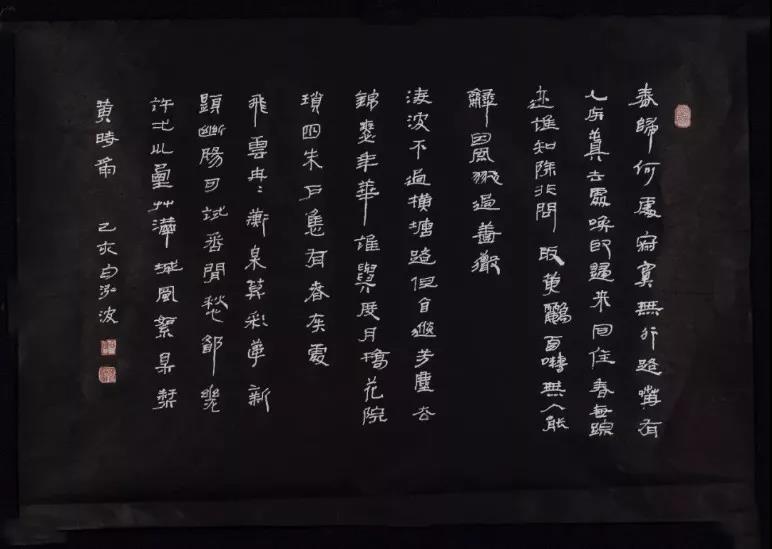 春歸何處寂寞無行路若有
人知春去處喚取歸來同住春無踪
迹誰知除非問取黄鸝百囀無人能
解因風飛過薔薇
凌波不過横塘路但目送芳塵去
錦瑟年華誰與度月橋花院
瑣窗朱户惟有春知處
飛雲冉冉蘅皋暮彩筆新
題斷腸句試問閒愁都幾
許一川煙艸滿城風絮梅子
黄時雨 己亥白泓波